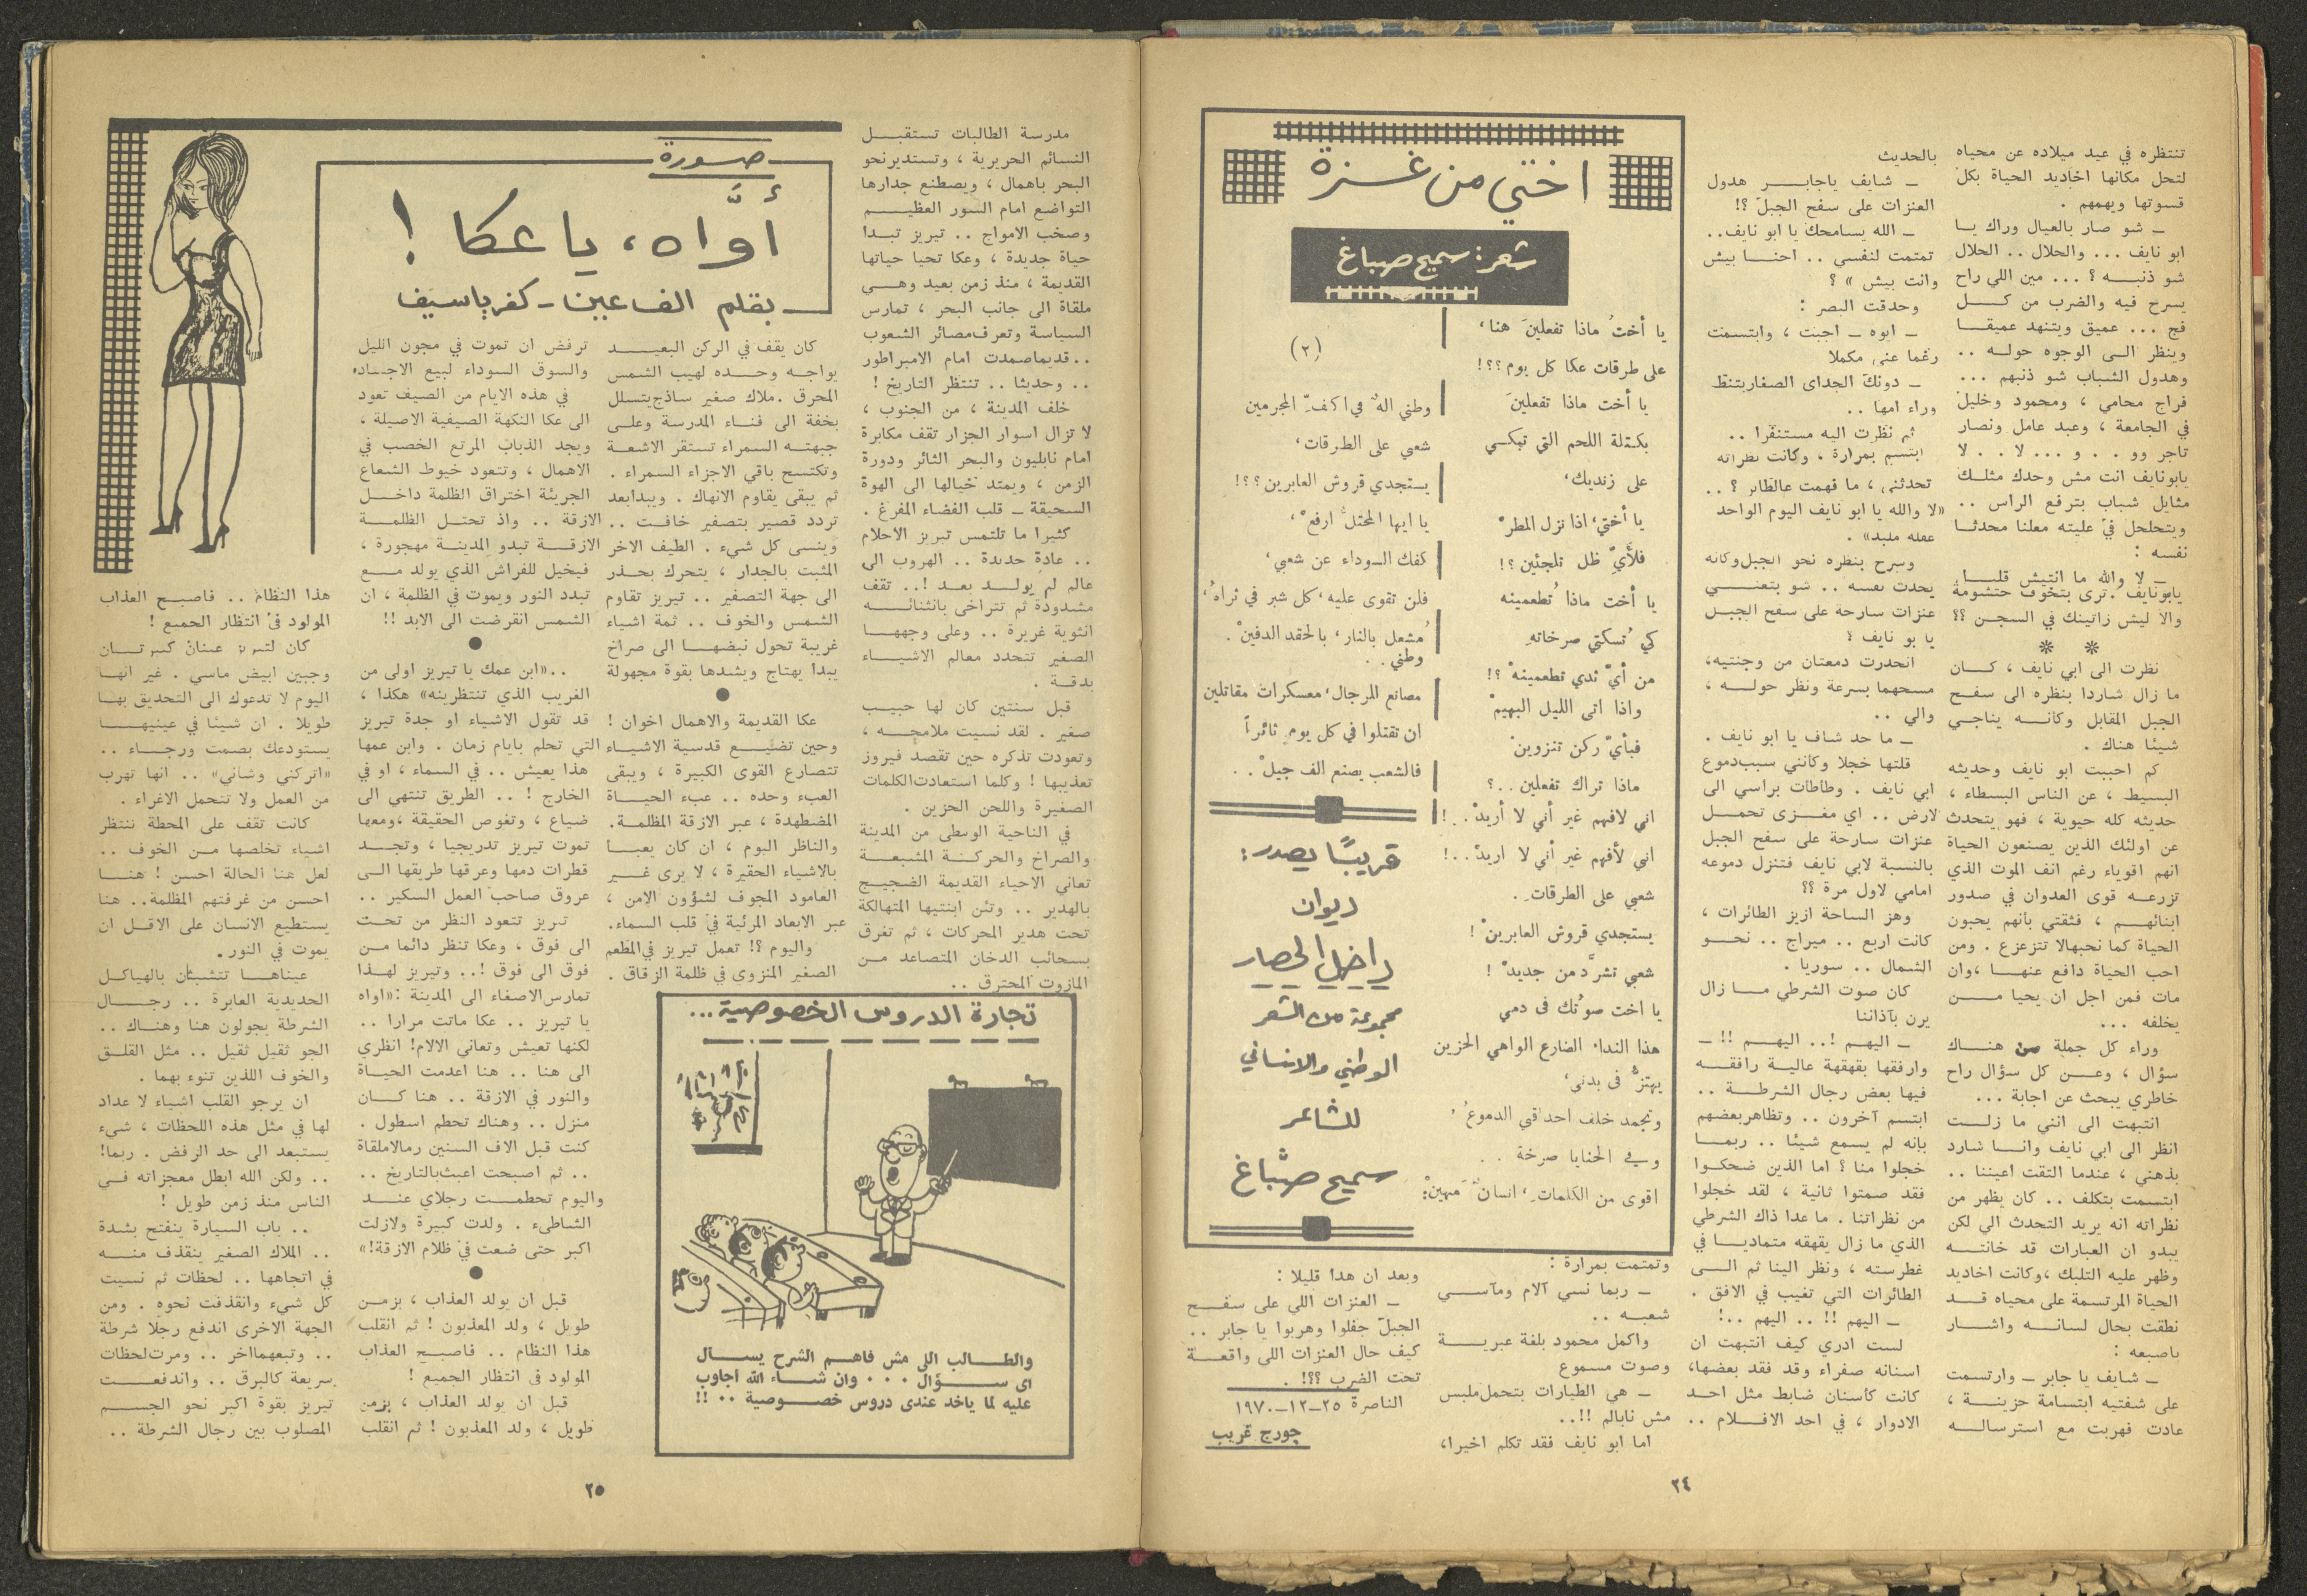 تنتظره في عيد ميلاده عن محياه
لتحل مكانها اخاديد الحياة بكل
قسوتها ويهمهم .
ــ شو صار بالعيال وراك يــا
ابو نايف ... والحلال .. الحلال
شو ذنبــه ؟ ... مين اللي راح
يسرح فيه والضرب من كــل
فج ... عميق ويتنهد عميقــا
وينظر الــى الوجوه حولــه ..
وهدول الشباب شو ذنبهم ...
فراج محامي ، ومحمود وخليل
في الجامعة ، وعبد عامل ونصار
تاجر وو . . و ... لا . . لا
يابونايف انت مش وحدك مثلــك
مثايل شباب بترفع الراس ..
ويتحلحل في عليته معلنا محدثــا
نفسه :
ــ لا والله ما انتيش قليــل
يابونايف .ترى بتخوف حتشومة
والا ليش زاتينك في السجــن ؟؟
* *
نظرت الى ابي نايف ، كــان
ما زال شاردا بنظره الى سفــح
الجبل المقابل وكانــه يناجــي
شيئا هناك .
كم احببت ابو نايف وحديثه
البسيط ، عن الناس البسطاء ،
حديثه كله حيوية ، فهو يتحدث
عن اولئك الذين يصنعون الحياة
انهم اقوياء رغم انف الموت الذي
تزرعــه قوى العدوان في صدور
ابنائهــم ، فثقتي بانهم يحبون
الحياة كما نحبهالا تتزعزع . ومن
احب الحياة دافع عنهــا ،وان
مات فمن اجل ان يحيا مــن
يخلفه ...
وراء كل جملة من هنــاك
سؤال ، وعــن كل سؤال راح
خاطري يبحث عن اجابة ...
انتبهت الى انني ما زلــت
انظر الى ابي نايف وانــا شارد
بذهني ، عندما التقت اعيننا ..
ابتسمت بتكلف .. كان يظهر من
نظراته انه يريد التحدث الي لكن
يبدو ان العبارات قد خانتــه
وظهر عليه التلبك ،وكانت اخاديد
الحياة المرتسمة على محياه قــد
نطقت بحال لسانــه واشــار
باصبعه :
ــ شايف يا جابر ــ وارتسمت
على شفتيه ابتسامة حزينــة ،
عادت فهربت مع استرسالــه
بالحديث
ــ شايف ياجابــر هدول
العنزات على سفح الجبل ؟!
ــ الله يسامحك يا ابو نايف..
تمتمت لنفسي .. احنــا بيش
وانت بيش » ؟
وحدقت البصر :
ــ ايوه ــ اجبت ، وابتسمت
رغما عني مكملا
ــ دونك الجداي الصغاربتنط
وراء امها ..
ثم نظرت اليه مستنفرا ..
ابتسم بمرارة ، وكانت نظراته
تحدثني ، ما فهمت عالظاير ؟ ..
«لا والله يا ابو نايف اليوم الواحد
عقله ملبد» .
وسرح بنظره نحو الجبل وكانه
يحدث نفسه .. شو بتعنــي
عنزات سارحة على سفح الجبــل
يا بو نايف ؟
انحدرت دمعتان من وجنتيه،
مسحهما بسرعة ونظر حولــه ،
والي ..
ــ ما حد شاف يا ابو نايف .
قلتها خجلا وكانني سبب‌دموع
ابي نايف . وطاطات براسي الى
لارض .. اي مغــزى تحمــل
عنزات سارحة على سفح الجبل
بالنسبة لابي نايف فتنزل دموعه
امامي لاول مرة ؟؟
وهز الساحة ازيز الطائرات ،
كانت اربع .. ميراج .. نحــو
الشمال .. سوريا .
كان صوت الشرطي مــا زال
يرن بآذاننا
ــ اليهــم !.. اليهــم !! ــ
وارفقها بقهقهة عاليــة رافقــه
فيها بعض رجال الشرطــة ..
ابتسم آخرون .. وتظاهر‌بعضهم
بإنه لم يسمع شيئا .. ربمــا
خجلوا منا ؟ اما الذين ضحكــوا
فقد صمتوا ثانية ، لقد خجلوا
من نظراتنا . ما عدا ذاك الشرطي
الذي ما زال يقهقه متماديــا في
غطرسته ، ونظر الينا ثم الــى
الطائرات التي تغيب في الافق .
ــ اليهم !! .. اليهم ..!
لست ادري كيف انتبهت ان
اسنانه صفراء وقد فقد بعضها،
كانت كاسنان ضابط مثل احــد
الادوار ، في احد الافــلام ..
اختي من غــزة
شعر: سميح صباغ
يا أختُ ماذا تفعلينَ هنا،
على طرقات عكا كل يوم؟؟!
يا أخت ماذا تفعلينَ
بكتلة اللحم التي تبكــي
على زنديك،
يا أختي، اذا نزل المطرْ
فلأيِّ ظل تلجئين؟!
يا أخت ماذا تُطعمينه
كي تُسكتي صرخاتهِ
من أيّ ثدي تطعمينهْ ؟!
واذا اتى الليل البهيمْ
فبأيّ ركن تنزوينْ
ماذا تراك تفعلين..؟
اني لافهم غير أني لا أريدْ..!
اني لأفهم غير أني لا اريدْ..!
شعبي على الطرقاتِ .
يستجدي قروش العابرينْ !
شعبي تشرَّد من جديدْ !
يا اخت صوتُك في دمي
هذا النداء الضارع الواهي الحزين
يهتزُّ في بدني،
وتجمد خلف احداقي الدموعُ ،
وفي الحنايا صرخة ..
اقوى من الكلماتِ، انسانٌ مهينْ:
(٢)
وطني الهٌ في اكفِّ المجرمين
شعبي على الطرقات،
يستجدي قروش العابرين؟؟!
يا ايها المحتلُّ ارفعْ ،
كفك السوداء عن شعبي،
فلن تقوى عليه،كل شبر في ثراهُ،
مُشعل بالنار، بالحقد الدفينْ .
وطني ..
مصانع للرجال، معسكرات مقاتلين
ان تقتلوا في كل يوم ثائراً
فالشعب يصنع الف جيلْ ..
قريبًا يصدر:
ديوان
داخل الحصار
مجموعة من الشعر
الوطني والانساني
للشاعر
سميح صبّاغ
وتمتمت بمرارة :
ــ ربما نسي آلام ومآســي
شعبــه ..
واكمل محمود بلغة عبريــة
وصوت مسموع
ــ هي الطيارات بتحمل‌ملبس
مش نابالم !!..
اما ابو نايف فقد تكلم اخيرا،
وبعد ان هدأ قليلا :
ــ العنزات اللي على سفــح
الجبل جفلوا وهربوا يا جابر ..
كيف حال العنزات اللي واقعــة
تحت الضرب ؟؟! .
الناصرة ٢٥-١٢-١٩٧٠
جورج غريب
٢٤
مدرسة الطالبات تستقبــل
النسائم الحريرية ، وتستدير‌نحو
البحر باهمال ، ويصطنع جدارها
التواضع امام السور العظيــم
وصخب الامواج .. تيريز تبــدا
حياة جديدة ، وعكا تحيا حياتها
القديمة ، منذ زمن بعيد وهــي
ملقاة الى جانب البحر ، تمارس
السياسة وتعرف‌مصائر الشعوب
..قديما‌صمدت امام الامبراطور
.. وحديثا .. تنتظر التاريخ !
خلف المدينة ، من الجنوب ،
لا تزال اسوار الجزار تقف مكابرة
امام نابليون والبحر الثائر ودورة
الزمن ، ويمتد خيالها الى الهوة
السحيقة ــ قلب الفضاء المفرغ .
كثيرا ما تلتمس تيريز الاحلام
.. عادة جديدة .. الهروب الى
عالم لم يولــد بعــد !.. تقف
مشدودة ثم تتراخى بانثنائــه
انثوية غريرة .. وعلى وجههــا
الصغير تتحدد معالم الاشيــاء
بدقــة .
قبل سنتين كان لها حبيــب
صغير . لقد نسيت ملامحــه ،
وتعودت تذكره حين تقصد فيروز
تعذيبها ! وكلما استعادت‌الكلمات
الصغيرة واللحن الحزين .
في الناحية الوسطى من المدينة
والصراخ والحركــة المشبعــة
تعاني الاحياء القديمة الضجيــج
بالهدير .. وتئن ابنتيها المتهالكة
تحت هدير المحركات ، ثم تغرق
بسحائب الدخان المتصاعد مــن
المازوت المحترق ..
صورة
أوَّاه، يا عكا !
بقلم الف عين ــ كفر ياسيف
كان يقف في الركن البعيــد
يواجــه وحــده لهيب الشمس
المحرق .ملاك صغير ساذج‌يتسلل
بخفة الى فنــاء المدرسة وعلــى
جبهتــه السمراء تستقر الاشعــة
وتكتسح باقي الاجزاء السمراء .
ثم يبقى يقاوم الانهاك . ويبدا‌بعد
تردد قصير بتصفير خافــت ..
وينسى كل شيء . الطيف الاخر
المثبت بالجدار ، يتحرك بحــذر
الى جهة التصفير .. تيريز تقاوم
الشمس والخوف .. ثمة اشياء
غريبة تحول نبضهــا الى صراخ
يبدا يهتاج ويشدها بقوة مجهولة
●
عكا القديمة والاهمال اخوان !
وحين تضيــع قدسية الاشيــاء
تتصارع القوى الكبيرة ، ويبقى
العبء وحده .. عبء الحيــاة
المضطهدة ، عبر الازقة المظلمــة.
والناظر اليوم ، ان كان يعبــأ
بالاشياء الحقيرة ، لا يرى غــير
العامود المجوف لشؤون الامن ،
عبر الابعاد المرئية في قلب السماء.
واليوم ؟! تعمل تيريز في‌المطعم
الصغير المنزوي في ظلمة الزقاق .
ترفض ان تموت في مجون الليل
والسوق السوداء لبيع الاجساد.
في هذه الايام من الصيف تعود
الى عكا النكهة الصيفية الاصيلة ،
ويجد الذباب المرتع الخصب في
الاهمال ، وتتعود خيوط الشعاع
الجريئة اختراق الظلمة داخــل
الازقة .. واذ تحتــل الظلمــة
الازقــة تبدو المدينــة مهجورة ،
فيخيل للفراش الذي يولد مــع
تبدد النور ويموت في الظلمة ، ان
الشمس انقرضت الى الابد !!
●
..«ابن عمك يا تيريز اولى من
الغريب الذي تنتظرينه» هكذا ،
قد تقول الاشياء او جدة تيريز
التي تحلم بايام زمان . وابن عمها
هذا يعيش .. في السماء ، او في
الخارج ! .. الطريق تنتهي الى
ضياع ، وتغوص الحقيقة ،ومعها
تموت تيريز تدريجيا ، وتجــد
قطرات دمها وعرقها طريقها الــى
عروق صاحب العمل السكير ..
تيريز تتعود النظر من تحــت
الى فوق ، وعكا تنظر دائما مــن
فوق الى فوق !.. وتيريز لهــذا
تمارس‌الاصغاء الى المدينة :«اواه
يا تيريز .. عكا ماتت مرارا ..
لكنها تعيش وتعاني الالام! انظري
الى هنا .. هنا اعدمت الحيــاة
والنور في الازقة .. هنا كــان
منزل .. وهناك تحطم اسطول .
كنت قبل الاف السنين رمالا‌ملقاة
.. ثم اصبحت اعبث‌بالتاريخ ..
واليوم تحطمــت رجلاي عنــد
الشاطيء . ولدت كبيرة ولازلت
اكبر حتى ضعت في ظلام الازقة!»
●
قبل ان يولد العذاب ، بزمــن
طويل ، ولد المعذبون ! ثم انقلب
هذا النظام .. فاصبــح العذاب
المولود في انتظار الجميع !
قبل ان يولد العذاب ، بزمن
طويل ، ولد المعذبون ! ثم انقلب
هذا النظام .. فاصبــح العذاب
المولود في انتظار الجميع !
كان لتيريز عينان كبيرتــان
وجبين ابيض ماسي . غير انهــا
اليوم لا تدعوك الى التحديق بهــا
طويلا . ان شيئا في عينيهــا
يستودعك بصمت ورجــاء ..
«اتركني وشاني» .. انها تهرب
من العمل ولا تتحمل الاغراء .
كانت تقف على المحطة تنتظر
اشياء تخلصها مــن الخوف ..
لعل هنا الحالة احسن ! هنــا
احسن من غرفتهم المظلمة.. هنا
يستطيع الانسان على الاقــل ان
يموت في النور.
عيناهــا تتشبثان بالهياكــل
الحديدية العابرة .. رجــال
الشرطة يجولون هنا وهنــاك ..
الجو ثقيل ثقيل .. مثل القلــق
والخوف اللذين تنوء بهما .
ان يرجو القلب اشياء لا عداد
لها في مثل هذه اللحظات ، شيء
يستبعد الى حد الرفض . ربما!
.. ولكن الله ابطل معجزاته فــي
الناس منذ زمن طويل !
.. باب السيارة ينفتح بشدة
.. الملاك الصغير ينقذف منــه
في اتجاهها .. لحظات ثم نسيت
كل شيء وانقذفت نحوه . ومن
الجهة الاخرى اندفع رجلا شرطة
.. وتبعهما‌اخر .. ومرت‌لحظات
سريعة كالبرق .. واندفعــت
تيريز بقوة اكبر نحو الجســم
المصلوب بين رجال الشرطة ..
تجارة الدروس الخصوصية...
والطــالب اللى مش فاهــم الشرح يســال
اى ســؤال ... وان شــاء الله اجاوب
عليه لما ياخد عندى دروس خصــوصية .. !!
٢٥